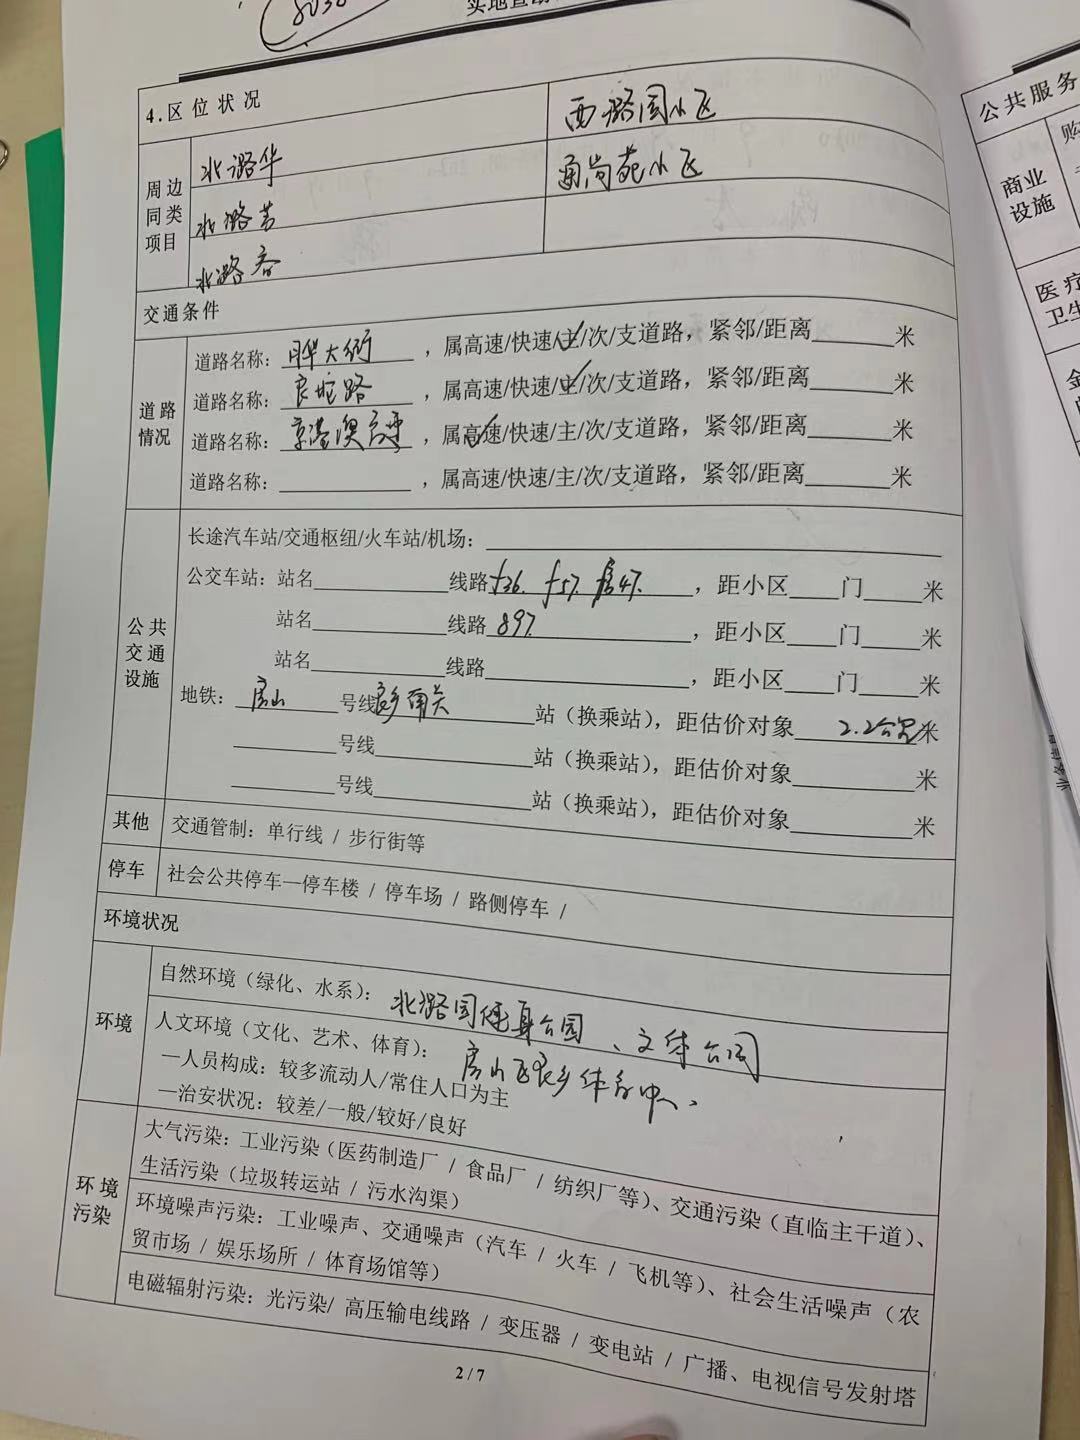 4.区位状况
周边同类项目
北潞华
西潞园小区
北潞苦
通尚苑小区
北潞春
交通条件
道路情况
道路名称：月华大街，属高速/快速/主/次/支道路，紧邻/距离______米
道路名称：良坨路，属高速/快速/主/次/支道路，紧邻/距离______米
道路名称：京港澳高速，属高速/快速/主/次/支道路，紧邻/距离______米
道路名称：______，属高速/快速/主/次/支道路，紧邻/距离______米
公共交通设施
长途汽车站/交通枢纽/火车站/机场：______
公交车站：站名______线路f36. f57. 房47.，距小区____门____米
站名______线路897.，距小区____门____米
站名______线路______，距小区____门____米
地铁：房山号线良乡南关站（换乘站），距估价对象2.2公里米
______号线______站（换乘站），距估价对象______米
______号线______站（换乘站），距估价对象______米
其他
交通管制：单行线 / 步行街等
停车
社会公共停车—停车楼 / 停车场 / 路侧停车 /
环境状况
环境
自然环境（绿化、水系）：北潞园健身公园、文体公园
人文环境（文化、艺术、体育）：房山区良乡体育中心.
—人员构成：较多流动人/常住人口为主
—治安状况：较差/一般/较好/良好
环境污染
大气污染：工业污染（医药制造厂 / 食品厂 / 纺织厂等）、交通污染（直临主干道）、
生活污染（垃圾转运站 / 污水沟渠）
环境噪声污染：工业噪声、交通噪声（汽车 / 火车 / 飞机等）、社会生活噪声（农
贸市场 / 娱乐场所 / 体育场馆等）
电磁辐射污染：光污染/ 高压输电线路 / 变压器 / 变电站 / 广播、电视信号发射塔
2/7
公共服务
商业设施
购
医疗
卫生
金